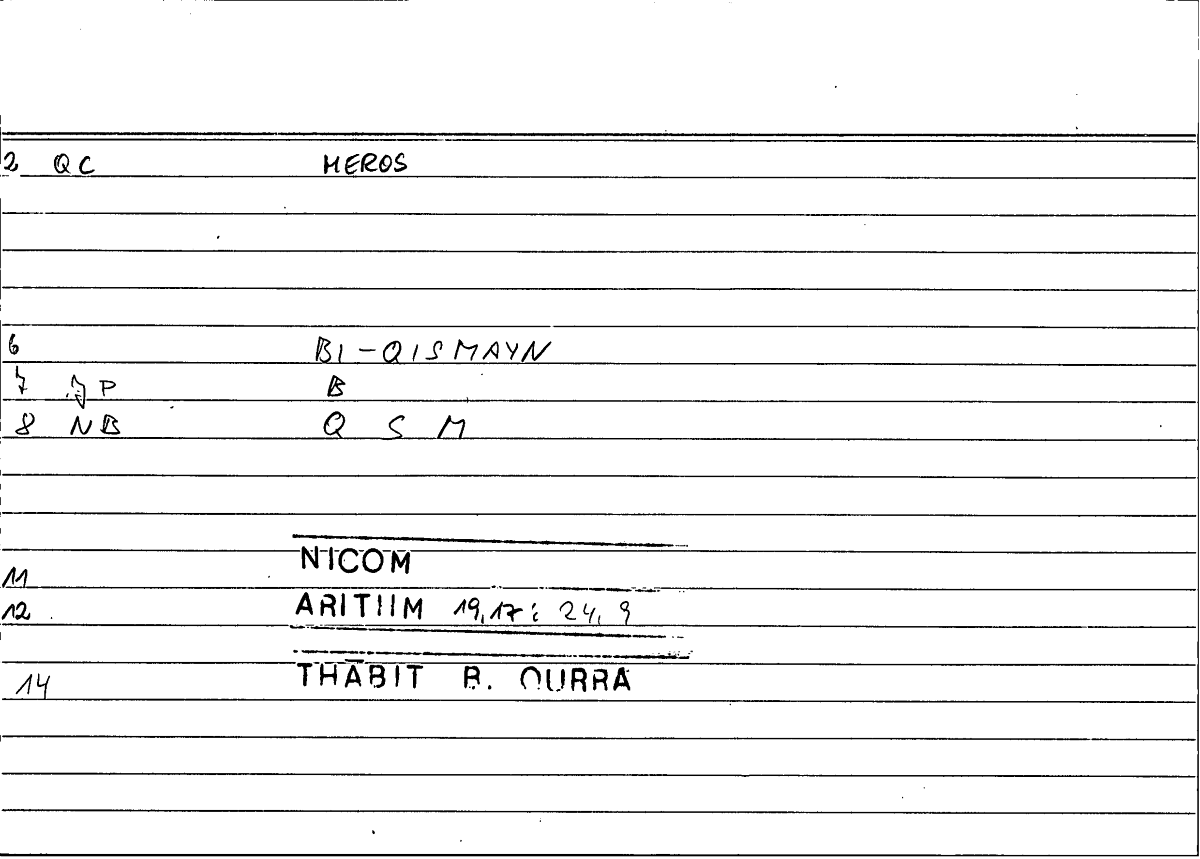 2 QC MEROS
6 BI-QISMAYN
7 P B
8 NB Q S M
11 NICOM
12 ARITIIM 19,17: 24,9
14 THĀBIT B. QURRA